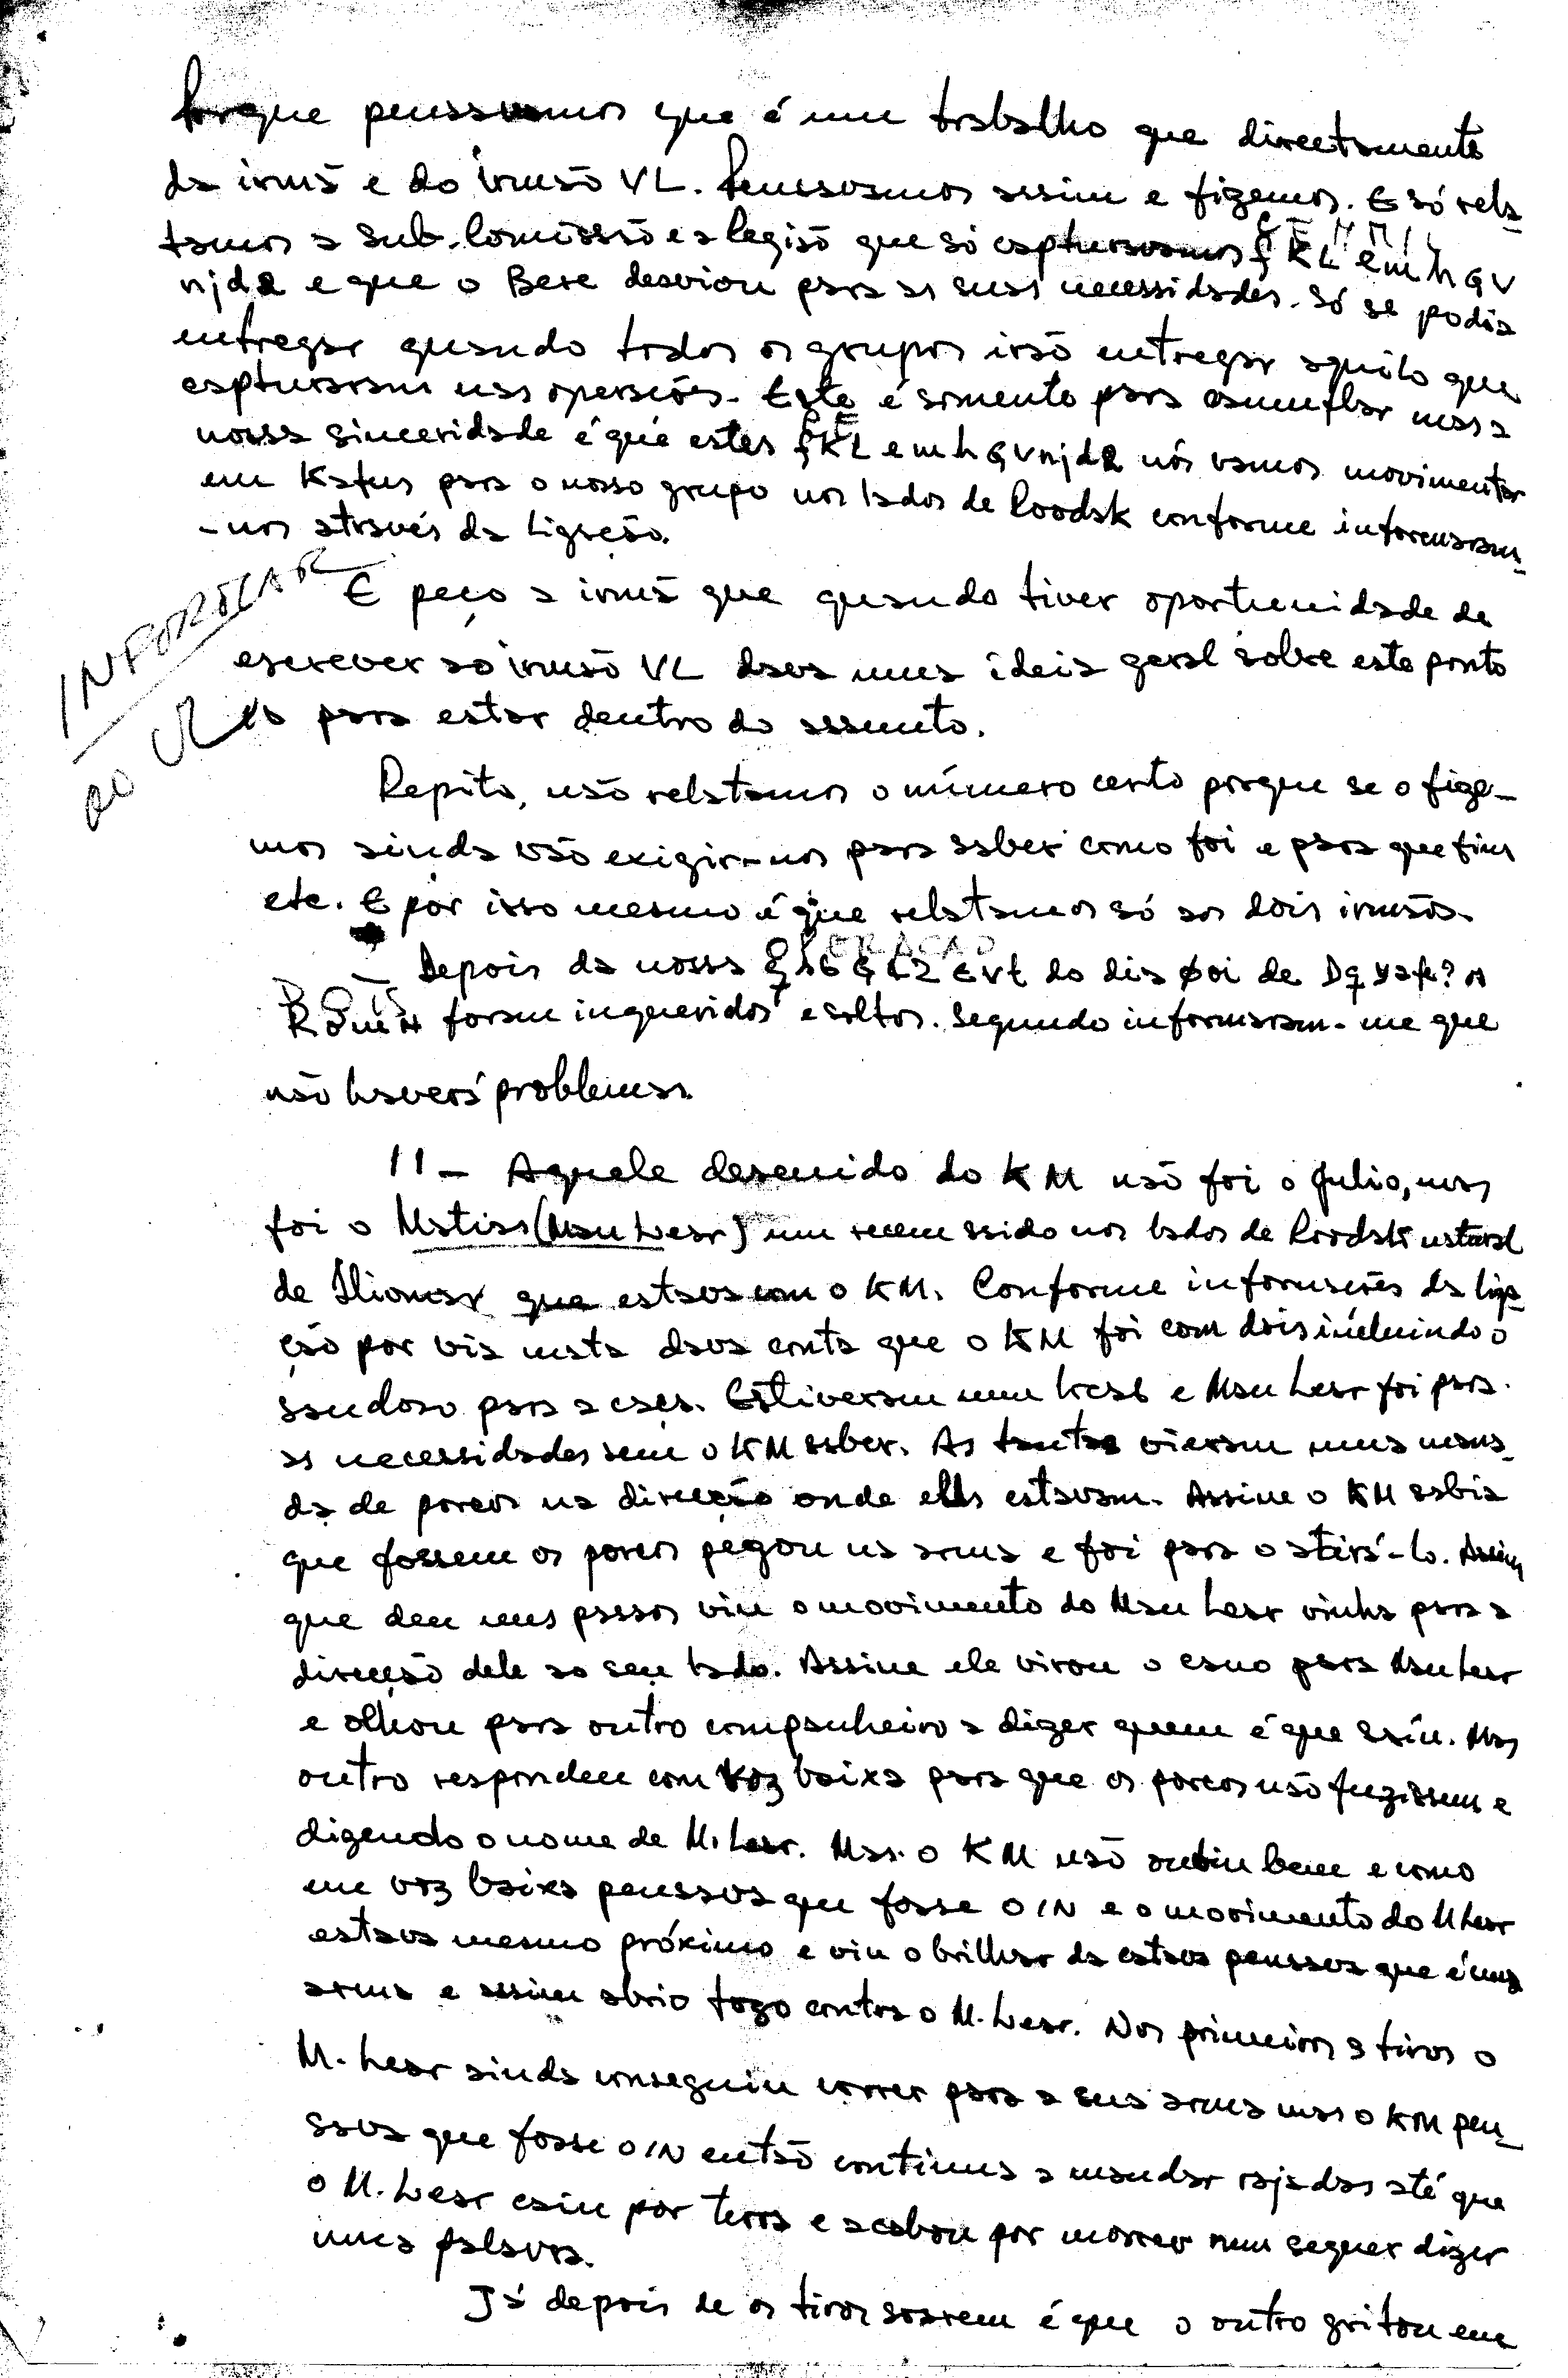 Porque pensavamos que é um trabalho que directamente
da irmã e do irmão VL. Pensavamos assim e fizemos. E só rela-
tamos a Sub-Comissão e a Região que só capturavamos fKL emhGV
njd2 e que o Bere desviou para as suas necessidades. Só se podia
entregar quando todos os grupos irão entregar aquilo que
capturaram nas operações. Este é somente para camuflar mas a
nossa sinceridade é que estes fKL emhGVnjd2 nós vamos movimentar
em Kafus para o nosso grupo nos lados de Roodsk conforme informaram-
-nos através da Ligação.
INFOROCAR
AO VL
E peço a irmã que quando tiver oportunidade de
escrever ao irmão VL dava uma ideia geral sobre este ponto
para estar dentro do assunto.
Repito, não relatamos o número certo porque se o fize-
mos ainda vão exigir-nos para saber como foi e para que fins
etc. E por isso mesmo é que relatamos só aos dois irmãos.
ERACAO
- Depois da nossa do dia de
foram inqueridos e soltos. Segundo informaram-me que
não haverá problemas.
11 - Aquele descuido do KM não foi o Julio, mas
foi o Matias (Mau Lear) um recem saido nos lados de Roodsk natural
de Iliomar que estava com o KM. Conforme informações da liga-
ção por via mata dava conta que o KM foi com dois incluindo o
saudoso para a caça. Estiveram num local e Mau Lear foi para
as necessidades sem o KM saber. As tantas vieram uma mana-
da de porcos na direcção onde eles estavam. Assim o KM sabia
que fossem os porcos pegou na arma e foi para o atirá-lo. Assim
que deu uns passos viu o movimento do Mau Lear vinha para a
direcção dele ao seu lado. Assim ele virou o cano para Mau Lear
e olhou para outro companheiro a dizer quem é que saíu. Mas
outro respondeu com voz baixa para que os porcos não fugissem e
dizendo o nome de M. Lear. Mas o KM não ouviu bem e como
em voz baixa pensava que fosse o IN e o movimento do M Lear
estava mesmo próximo e viu o brilhar da catava pensava que é uma
arma e assim abrio fogo contra o M. Lear. Nos primeiros 3 tiros o
M. Lear ainda conseguiu correr para a sua arma mas o KM pen-
sava que fosse o IN então continua a mandar rajadas até que
o M. Lear caiu por terra e acabou por morrer nem sequer dizer
uma palavra.
Já depois de os tiros soarem é que o outro gritou em